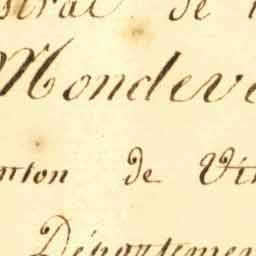 stral de l
Mondeve
nton de Vi
Départemen